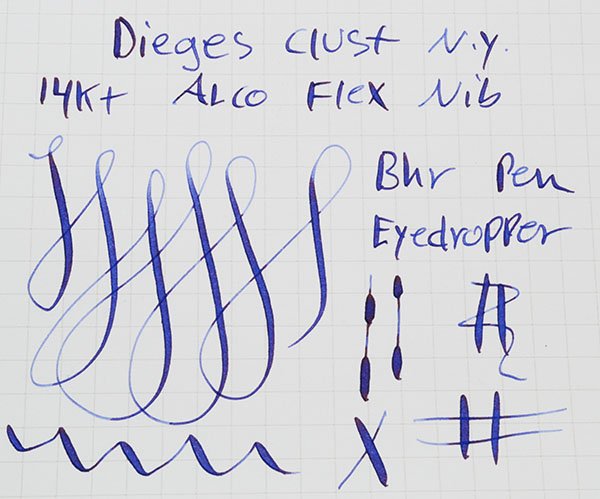 Dieges Clust N.Y.
14Kt Alco Flex Nib
Bhr Pen
Eyedropper